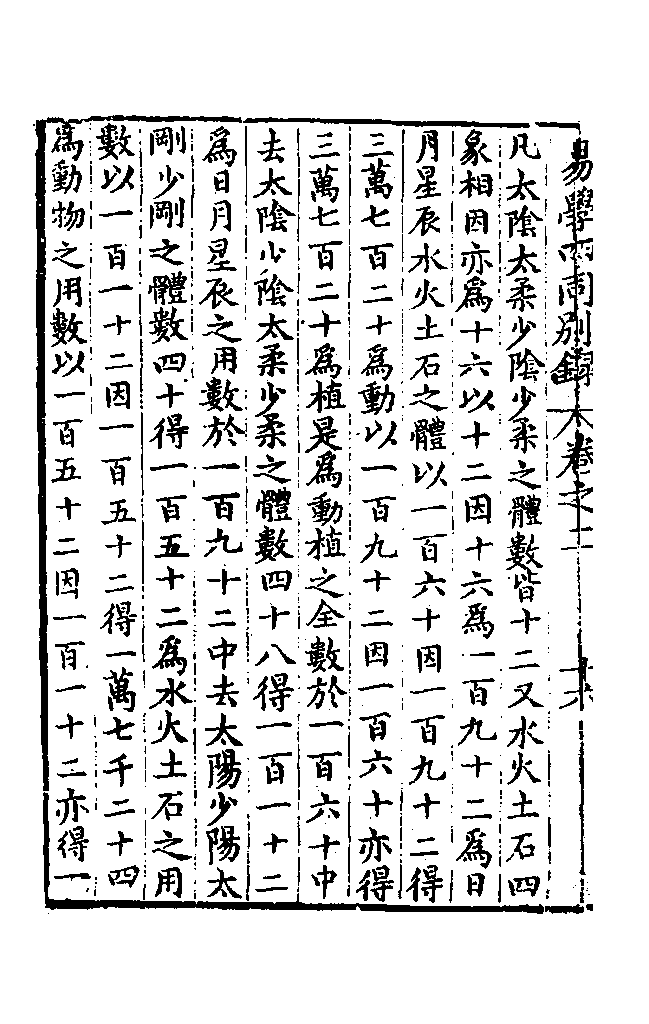 易學四同別錄 卷之 十六
凡太陰太柔少陰少柔之體數皆十二又水火土石四
象相因亦爲十六以十二因十六爲一百九十二爲日
月星辰水火土石之體以一百六十因一百九十二得
三萬七百二十爲動以一百九十二因一百六十亦得
三萬七百二十爲植是爲動植之全數於一百六十中
去太陰少陰太柔少柔之體數四十八得一百一十二
爲日月星辰之用數於一百九十二中去太陽少陽太
剛少剛之體數四十得一百五十二爲水火土石之用
數以一百一十二因一百五十二得一萬七千二十四
爲動物之用數以一百五十二因一百一十二亦得一